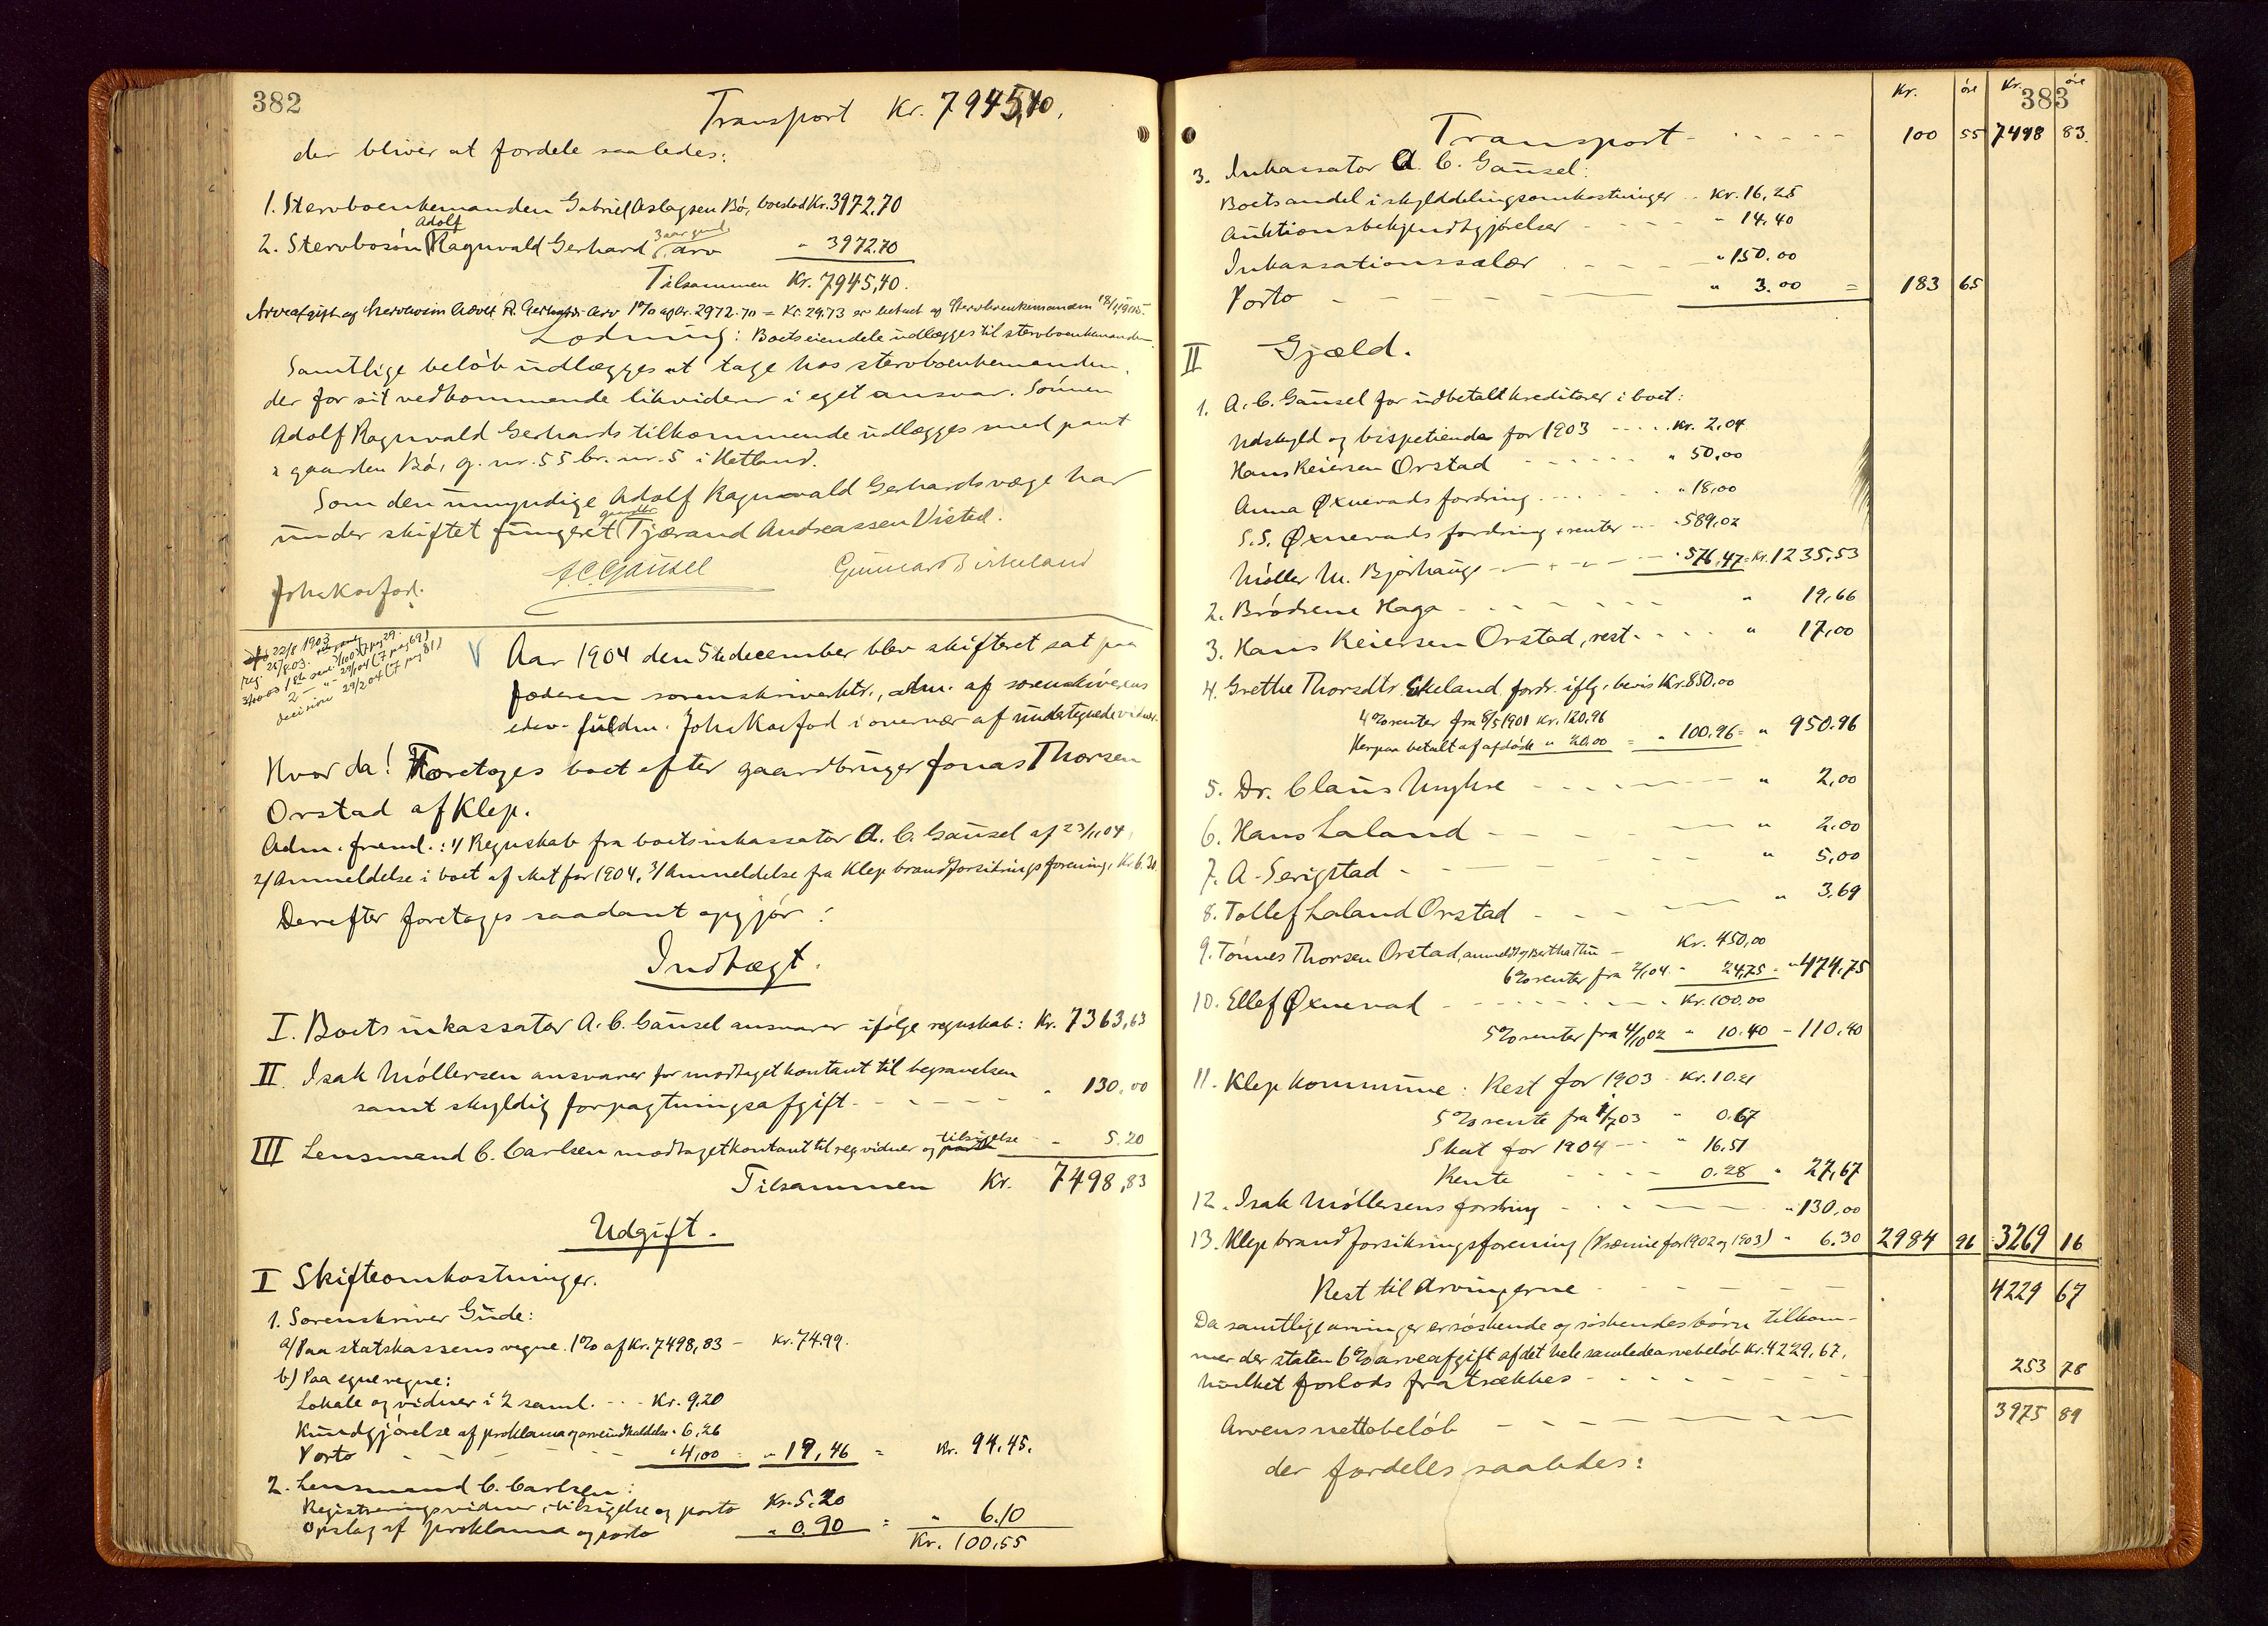 382
Transport Kr. 7945,40.
der bliver at fordele saaledes:
1. Stervboenkemanden Gabriel Aslagsen Bö, boeslod Kr. 3972,70
Adolf
2. Stervbosön Ragnvald Gerhard 3 aar gml. arv " 3972.70
Tilsammen Kr. 7945,40.
Arveafgift af stervbosön Adolf R. Gerhards arv 1% af Kr. 2972.70 = Kr. 29.73 er betalt af stervboenkemanden
Lodning: Boets eiendele udlægges til stervboenkemanden.
Samtlige belöb udlægges at tage hos stervboenkemanden,
der for sit vedkommende likviderer i eget ansvar. Sönnen
Adolf Ragnvald Gerhards tilkommende udlægges med pant
i gaarden Bö, g.nr. 55 br.nr. 5 i Hetland.
Som den umyndige Adolf Ragnvald Gerhards værge har
under skiftet fungeret gaardbr. Tjærand Andreassen Visted.
Joh. Koefod. A C Gausel Gunnar Birkeland
22/8 1903
reg. 25/8 03.
decision 29/2 04 (7 pag 81)
V Aar 1904 den 5te december blev skifteret sat paa
Jæderen sorenskriverktr., adm. af sorenskriverens
edsv. fuldm. Joh. Koefod i overvær af undertegnede vidner.
Hvor da! Foretages boet efter gaardbruger Jonas Thorsen
Orstad af Klep.
Adm. freml.: 1/ Regnskab fra boets inkassator A. C. Gausel af 23/11 04,
2/ Anmeldelse i boet af skat for 1904, 3/ Anmeldelse fra Klep brandforsikringsforening, Kr. 6.30.
Derefter foretages saadant opgjör:
Indtægt.
I. Boets inkassator A. C. Gausel ansvarer ifölge regnskab: Kr. 7363,63
II. Isak Möllersen ansvarer for modtaget kontant til begravelsen
samt skyldig forpagtningsafgift - - - - " 130,00
III Lensmand C. Carlsen modtaget kontant til reg.vidner og tilsigelse - " 5.20
Tilsammen Kr. 7498,83
Udgift.
I Skifteomkostninger.
1. Sorenskriver Gude:
a/ Paa statskassens vegne. 1% af Kr. 7498,83 - Kr. 74.99.
b) Paa egne vegne:
Lokale og vidner i 2 saml. - - - Kr. 9,20
Kundgjörelse af proklama og arveindkaldelse " 6,26
Porto - - - - - " 4,00 = " 19,46 = Kr. 94.45.
2. Lensmand C. Carlsen:
Registreringsvidner, tilsigelse og porto Kr. 5.20
Opslag af proklama og porto " 0.90 = " 6.10
Kr. 100.55
383
Kr. öre Kr. öre
Transport - - - - - 100 55 7498 83.
3. Inkassator A. C. Gausel:
Boets andel i skylddelingsomkostninger - Kr. 16,25
Auktionsbekjendtgjörelser - - - " 14,40
Inkassationssalær - - - - " 150.00
Porto - - - - - " 3.00 = 183 65
II Gjæld.
1. A. C. Gausel for udbetalt kreditorer i boet:
Udskyld og bispetiende for 1903 - - - - Kr. 2,04
Hans Reiersen Orstad - - - - - " 50,00
Anna Øxnevads fordring - - - - " 18,00
S. S. Øxnevads fordring + renter - - - " 589,02
Möller M. Bjorhaug - - - - - " 576,47 = Kr. 1235,53
2. Brödrene Haga - - - - - " 19,66
3. Hans Reiersen Orstad, rest - - - - " 17,00
4. Grethe Thorsdtr. Ekeland, fordr. iflg. bevis Kr. 850,00
4% renter fra 8/5 1901 Kr. 120,96
Herpaa betalt af afdöde " 20,00 = " 100.96 = " 950.96
5. Dr. Claus Unghse - - - - - " 2,00
6. Hans Laland - - - - " 2.00
7. A. Serigstad - - - - " 5,00
8. Tollef Laland Orstad - - - - " 3,69
9. Tönnes Thorsen Orstad, anmeldt af Bertha Thu - Kr. 450,00
6% renter fra 2/1 04 - 24,75 - " 474,75
10. Ellef Øxnevad - - - - - - Kr. 100.00
5% renter fra 4/10 02 " 10.40 - 110,40
11. Klep kommune: Rest for 1903 - Kr. 10.21
5% rente fra 1/7 03 " 0.67
Skat for 1904 - - - " 16,51
Rente - - - - 0.28 " 27,67
12. Isak Möllersens fordring - - - - - " 130,00
13. Klep brandforsikringsforening (Præmie for 1902 og 1903) " 6.30 2984 96 3269 16
Rest til Arvingerne - - - - - 4229 67
Da samtlige arvinger er söskende og söskendes börn tilkom-
mer der staten 6% arveafgift af det hele samlede arvebelöb Kr. 4229,67,
hvilket forlods fratrækkes - - - - - - 253 78
Arvens nettobelöb - - - - - 3975 89
der fordeles saaledes: